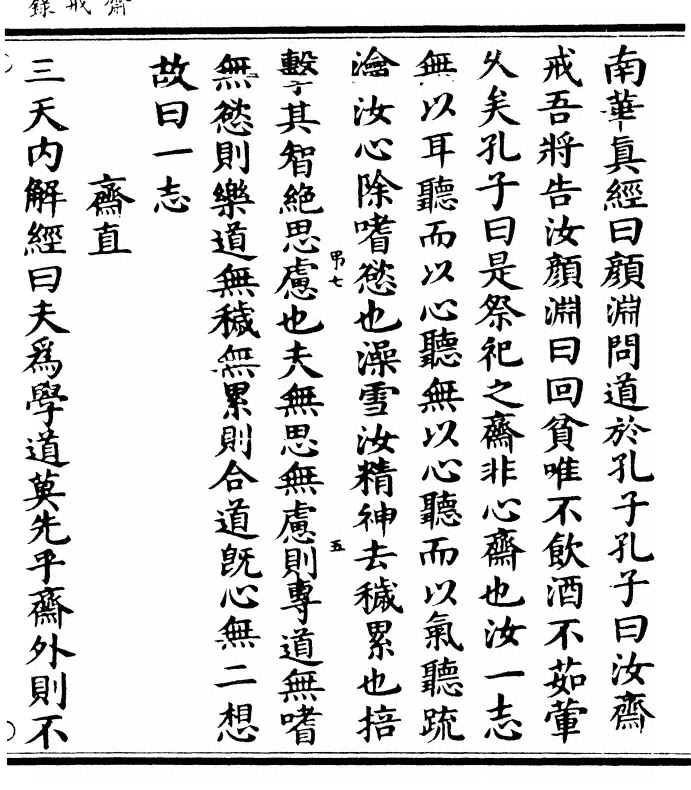 齋戒錄
南華眞經曰顏淵問道於孔子孔子曰汝齋
戒吾將告汝顏淵曰回貧唯不飲酒不茹葷
久矣孔子曰是祭祀之齋非心齋也汝一志
無以耳聽而以心聽無以心聽而以氣聽疏
瀹汝心除嗜慾也澡雪汝精神去穢累也掊
擊其智絕思慮也夫無思無慮則專道無嗜
弔七
五
無慾則樂道無穢無累則合道旣心無二想
故曰一志
齋直
三天內解經曰夫爲學道莫先乎齋外則不